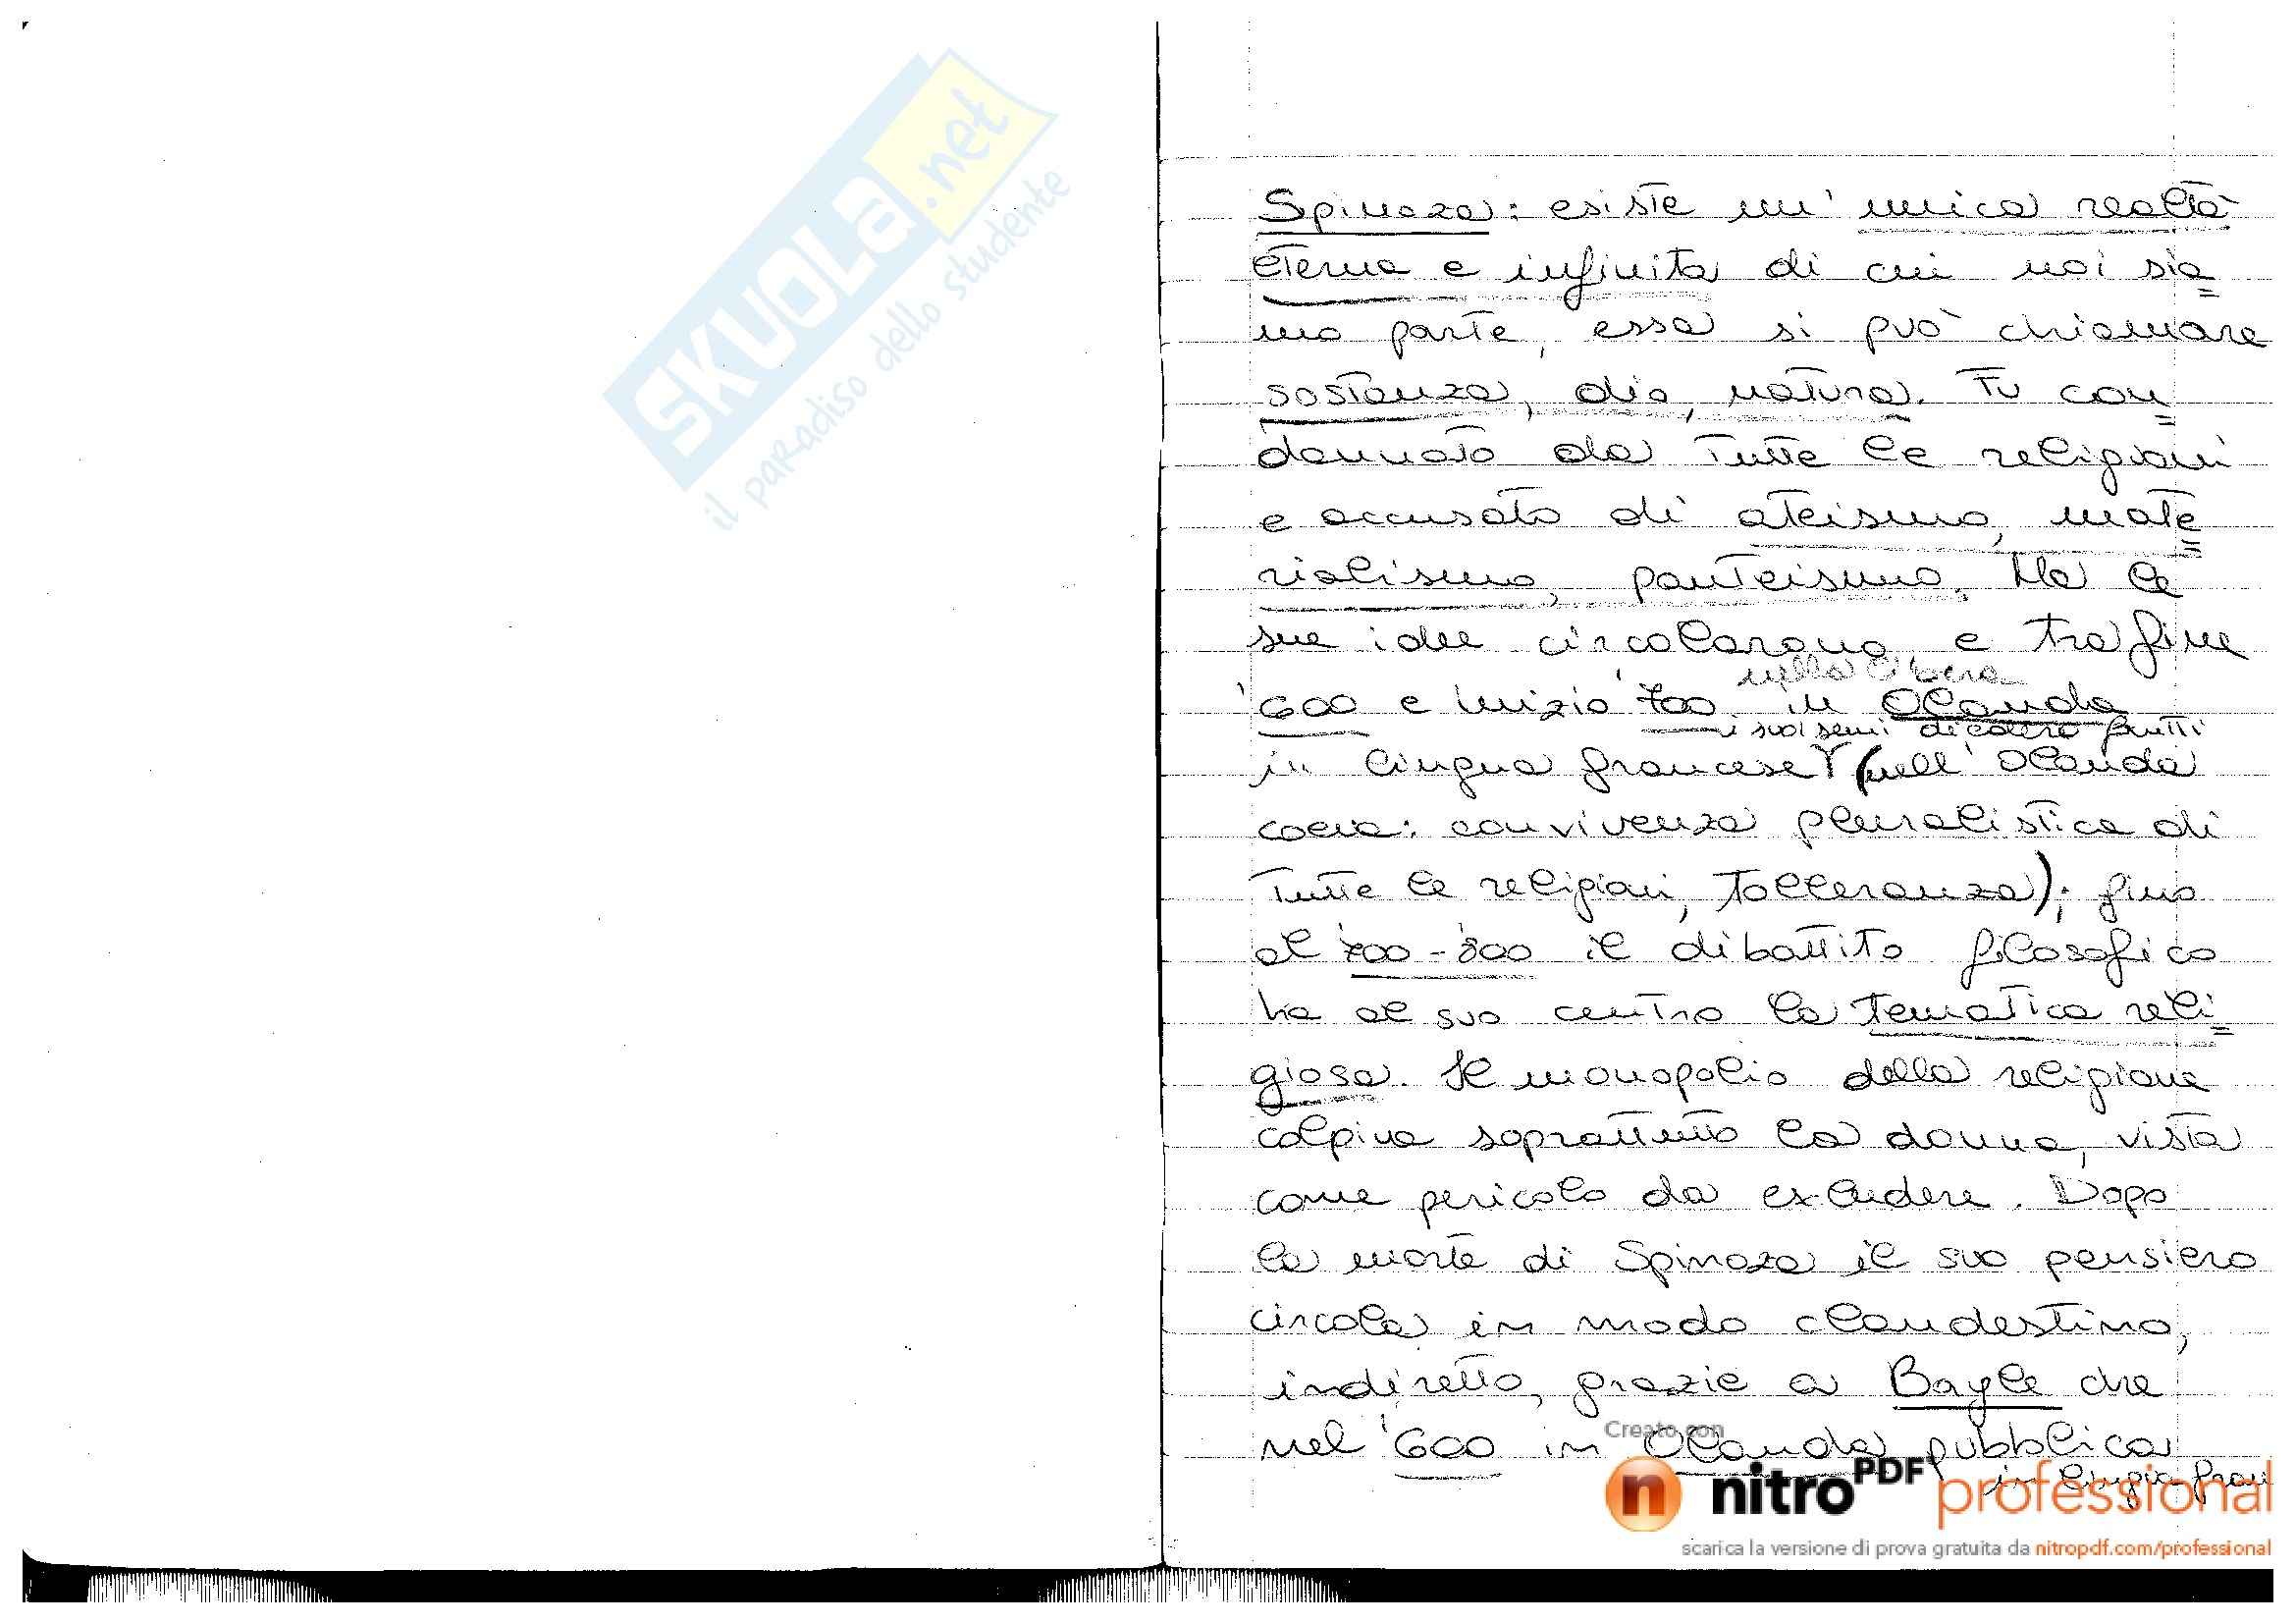 SKUOLA.net
il paradiso dello studente
Spinoza: esiste un'unica realtà
eterna e infinita di cui noi sia=
mo parte, essa si può chiamare
sostanza, dio, natura. Fu con=
dannato da tutte le religioni
e accusato di ateismo, mate=
rialismo, panteismo. Ma le
sue idee circolarono e tra fine
'600 e inizio '700 in Olanda
nella libera
in lingua francese (nell'Olanda
i suoi semi diedero frutti
coeva: convivenza pluralistica di
tutte le religioni, tolleranza); fino
al '700-'800 il dibattito filosofico
ha al suo centro la tematica reli=
giosa. Il monopolio della religione
colpiva soprattutto la donna, vista
come pericolo da escludere. Dopo
la morte di Spinoza il suo pensiero
circola in modo clandestino,
indiretto, grazie a Bayle che
nel '600 in Olanda pubblica
in lingua fran
Creato con
nitro PDF professional
scarica la versione di prova gratuita da nitropdf.com/professional